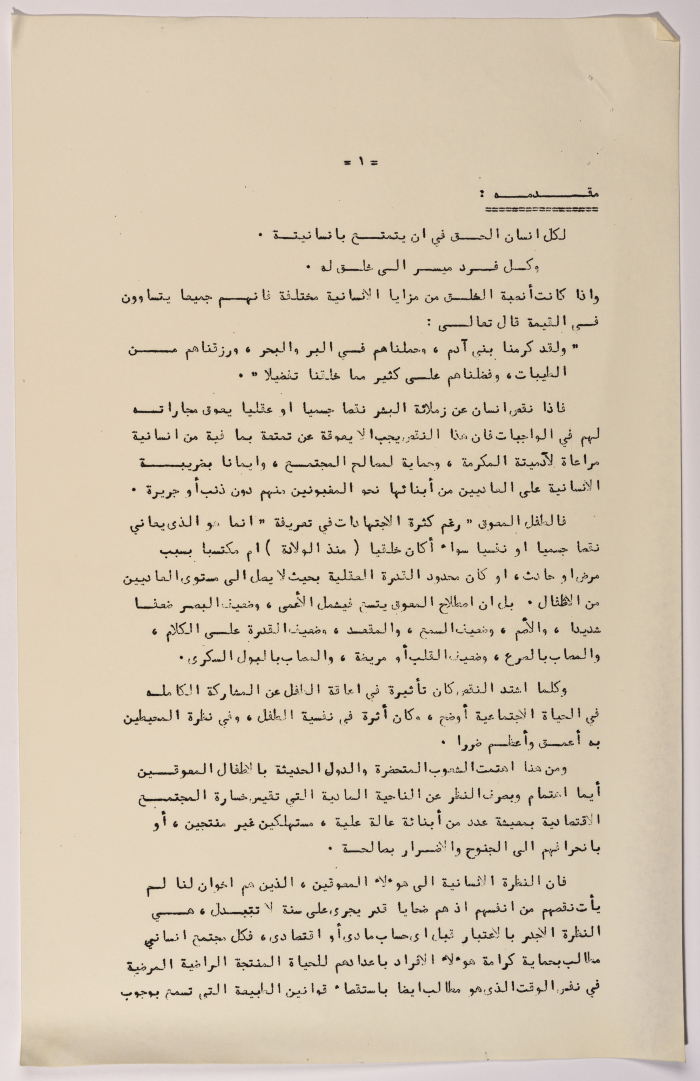 = ١ =
مقدمه :
لكل انسان الحق في ان يتمتع بانسانيتة .
وكل فرد ميسر الى خلق له .
واذا كانت أنصبة الخلق من مزايا الانسانية مختلفة فانهم جميعا يتساوون
في القيمة قال تعالى :
" ولقد كرمنا بنى آدم ، وحملناهم في البر والبحر ، ورزقناهم من
الطيبات ، وفضلناهم على كثير مما خلقنا تفضيلا " .
فاذا نقص انسان عن زملائة البشر نقصا جسميا او عقليا يعوق مجاراته
لهم في الواجبات فان هذا النقص يجب الا يعوقة عن تمتعة بما فية من انسانية
مراعاة لآدميتة المكرمة ، وحماية لمصالح المجتمع ، وايمانا بضريبة
الانسانية على العاديين من أبنائها نحو المغبونين منهم دون ذنب أو جريرة .
فالطفل المعوق " رغم كثرة الاجتهادات في تعريفة " انما هو الذى يعاني
نقصا جسميا او نفسيا سواء أكان خلقيا ( منذ الولادة ) ام مكتسبا بسبب
مرض او حادث ، او كان محدود القدرة العقلية بحيث لا يصل الى مستوى العاديين
من الاطفال . بل ان اصطلاح المعوق يتسع فيشمل الأعمى ، وضعيف البصر ضعفا
شديدا ، والأصم ، وضعيف السمع ، والمقعد ، وضعيف القدرة على الكلام ،
والمصاب بالصرع ، وضعيف القلب أو مريضة ، والمصاب بالبول السكرى .
وكلما اشتد النقص كان تأثيرة في اعاقة الطفل عن المشاركة الكاملة
في الحياة الاجتماعية أوضح ، وكان أثرة في نفسية الطفل ، وفي نظرة المحيطين
به أعمق وأعظم ضررا .
ومن هذا اهتمت الشعوب المتحضرة والدول الحديثة بالاطفال المعوقين
أيما اهتمام وبصرف النظر عن الناحية المادية التي تقيس خسارة المجتمع
الاقتصادية بمعيشة عدد من أبنائة عالة علية ، مستهلكين غير منتجين ، أو
بانحرافهم الى الجنوح والاضرار بصالحة .
فان النظرة الانسانية الى هوءلاء المعوقين ، الذين هم اخوان لنا لم
يأت نقصهم من انفسهم اذ هم ضحايا قدر يجرى على سنة لا تتبدل ، هي
النظرة الاجدر بالاعتبار قبل اى حساب مادى أو اقتصادى ، فكل مجتمع انساني
مطالب بحماية كرامة هوءلاء الافراد باعدادهم للحياة المنتجة الراضية المرضية
في نفس الوقت الذى هو مطالب ايضا باستقصاء قوانين الطبيعة التي تسمح بوجوب